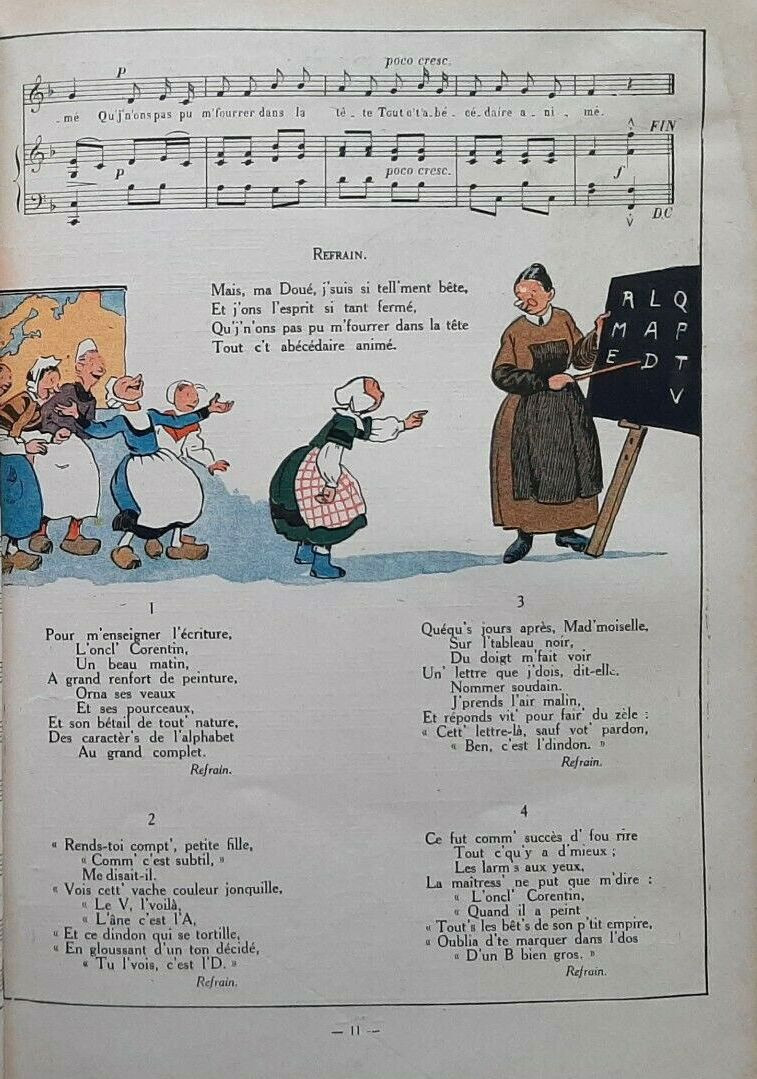 p
poco cresc.
-mé Qu'j'n'ons pas pu m'fourrer dans la tê - te Tout c't'a.bé - cé.daire a - ni - mé.
FIN
p
poco cresc.
f
D.C
REFRAIN.
Mais, ma Doué, j'suis si tell'ment bête,
Et j'ons l'esprit si tant fermé,
Qu'j'n'ons pas pu m'fourrer dans la tête
Tout c't abécédaire animé.
R L Q
M A P
E D T
V
1
Pour m'enseigner l'écriture,
L'oncl' Corentin,
Un beau matin,
A grand renfort de peinture,
Orna ses veaux
Et ses pourceaux,
Et son bétail de tout' nature,
Des caractèr's de l'alphabet
Au grand complet.
Refrain.
2
« Rends-toi compt', petite fille,
« Comm' c'est subtil, »
Me disait-il.
« Vois cett' vache couleur jonquille,
« Le V, l'voilà,
« L'âne c'est l'A,
« Et ce dindon qui se tortille,
« En gloussant d'un ton décidé,
« Tu l'vois, c'est l'D. »
Refrain.
3
Quéqu's jours après, Mad'moiselle,
Sur l'tableau noir,
Du doigt m'fait voir
Un' lettre que j'dois, dit-elle.
Nommer soudain.
J'prends l'air malin,
Et réponds vit' pour fair' du zèle :
« Cett' lettre-là, sauf vot' pardon,
« Ben, c'est l'dindon. »
Refrain.
4
Ce fut comm' succès d' fou rire
Tout c'qu'y a d'mieux ;
Les larm's aux yeux,
La maîtress' ne put que m'dire :
« L'oncl' Corentin,
« Quand il a peint
« Tout's les bêt's de son p'tit empire,
« Oublia d'te marquer dans l'dos
« D'un B bien gros. »
Refrain.
— 11 —